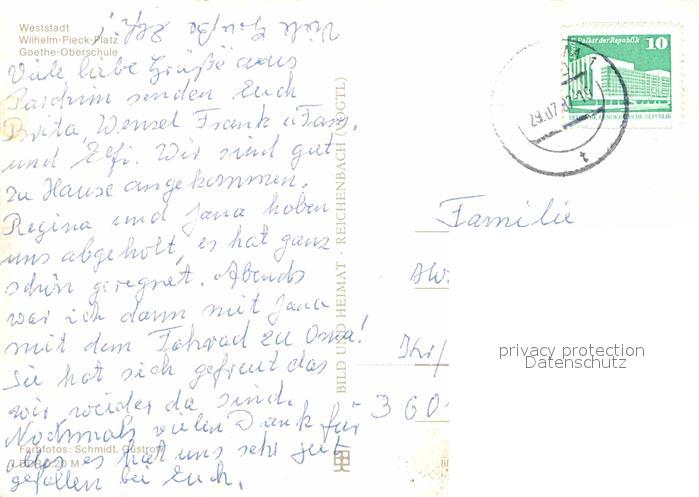 Weststadt
Wilhelm-Pieck-Platz
Goethe-Oberschule
Viele Grüße Elfi!
Viele liebe Grüße aus
Parchim senden Euch
Brita, Wensel Frank u
und Elfi. Wir sind gut
zu Hause angekommen.
Regina und Jana hoben
uns abgeholt, es hat ganz
schön geregnet. Abends
war ich dann mit Jana
mit dem Fahrad zu Oma!
Sie hat sich gefreut das
wir weider da sind.
Nochmals vielen Dank für
alles, es hat uns sehr gut
gefallen bei Euch.
Farbfotos: Schmidt, Güstrow
0,20 M
BILD UND HEIMAT · REICHENBACH (VOGTL)
Berlin, Palast der Republik
10
DEUTSCHE DEMOKRATISCHE REPUBLIK
29.07.87-19
t
Familie
360
privacy protection
Datenschutz